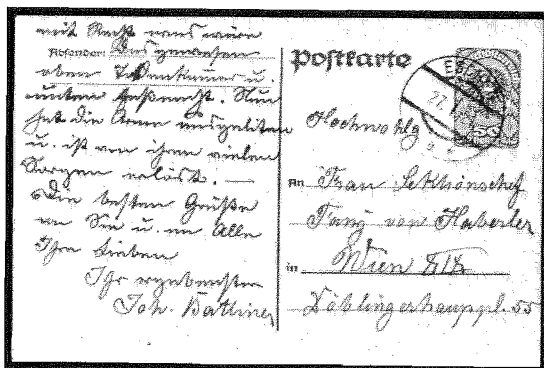 mit Recht
Absender:
oben Totenkammer u.
unten Fastnacht. Nun
hat die Arme ausgelitten
u. ist von ihren vielen
Sorgen erlöst. —
Die besten Grüße
an Sie u. an Alle
Ihre Lieben
Ihr ergebenster
Joh. Batliner
Postkarte
Hochwohlg
An Frau Sektionschef
Fany von Haberler
in Wien XIX
Döblingerhauptpl. 55